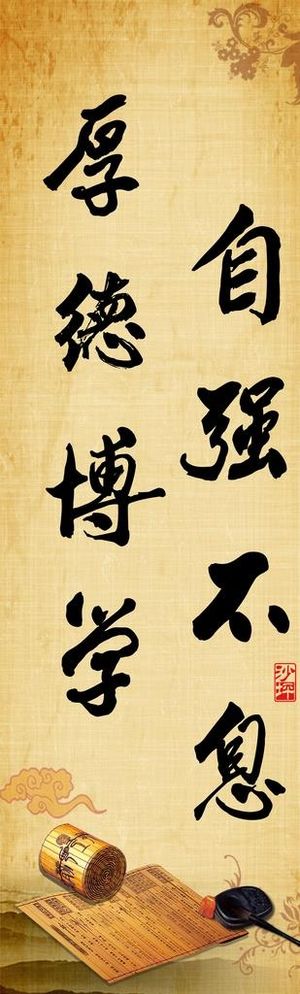 自强不息
厚德博学
沙坪